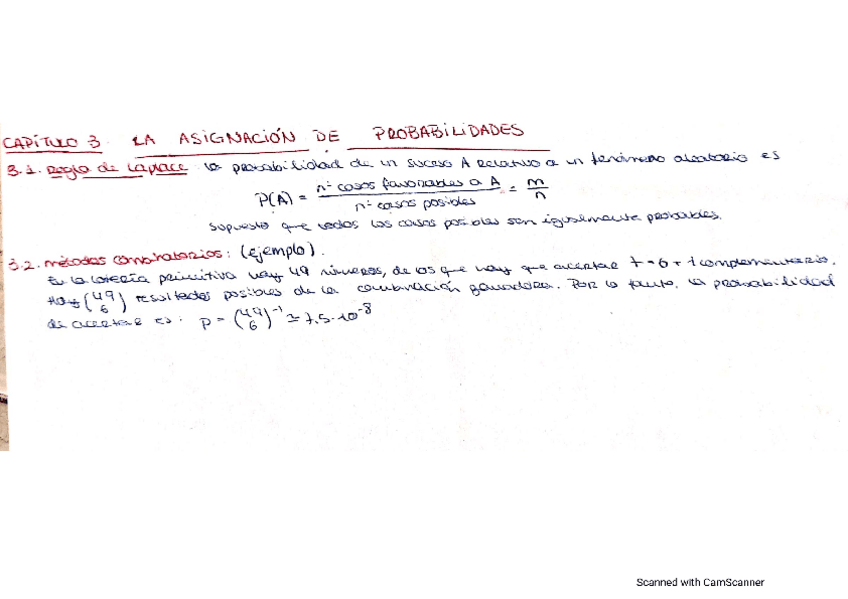 CAPÍTULO 3. LA ASIGNACIÓN DE PROBABILIDADES
3.1. Regla de Laplace la probabilidad de un suceso A relativo a un fenómeno aleatorio es
P(A) = nº casos favorables a A / nº casos posibles = m/n
Supuesto que todos los casos posibles son igualmente probables.
3.2. Métodos combinatorios: (ejemplo).
En la lotería primitiva hay 49 números, de los que hay que acertar 7 = 6 + 1 complementario.
Hay (49 6) resultados posibles de la combinación ganadora. Por lo tanto, la probabilidad
de acertar es: p = (49 6)⁻¹ ≃ 7,5·10⁻⁸
Scanned with CamScanner